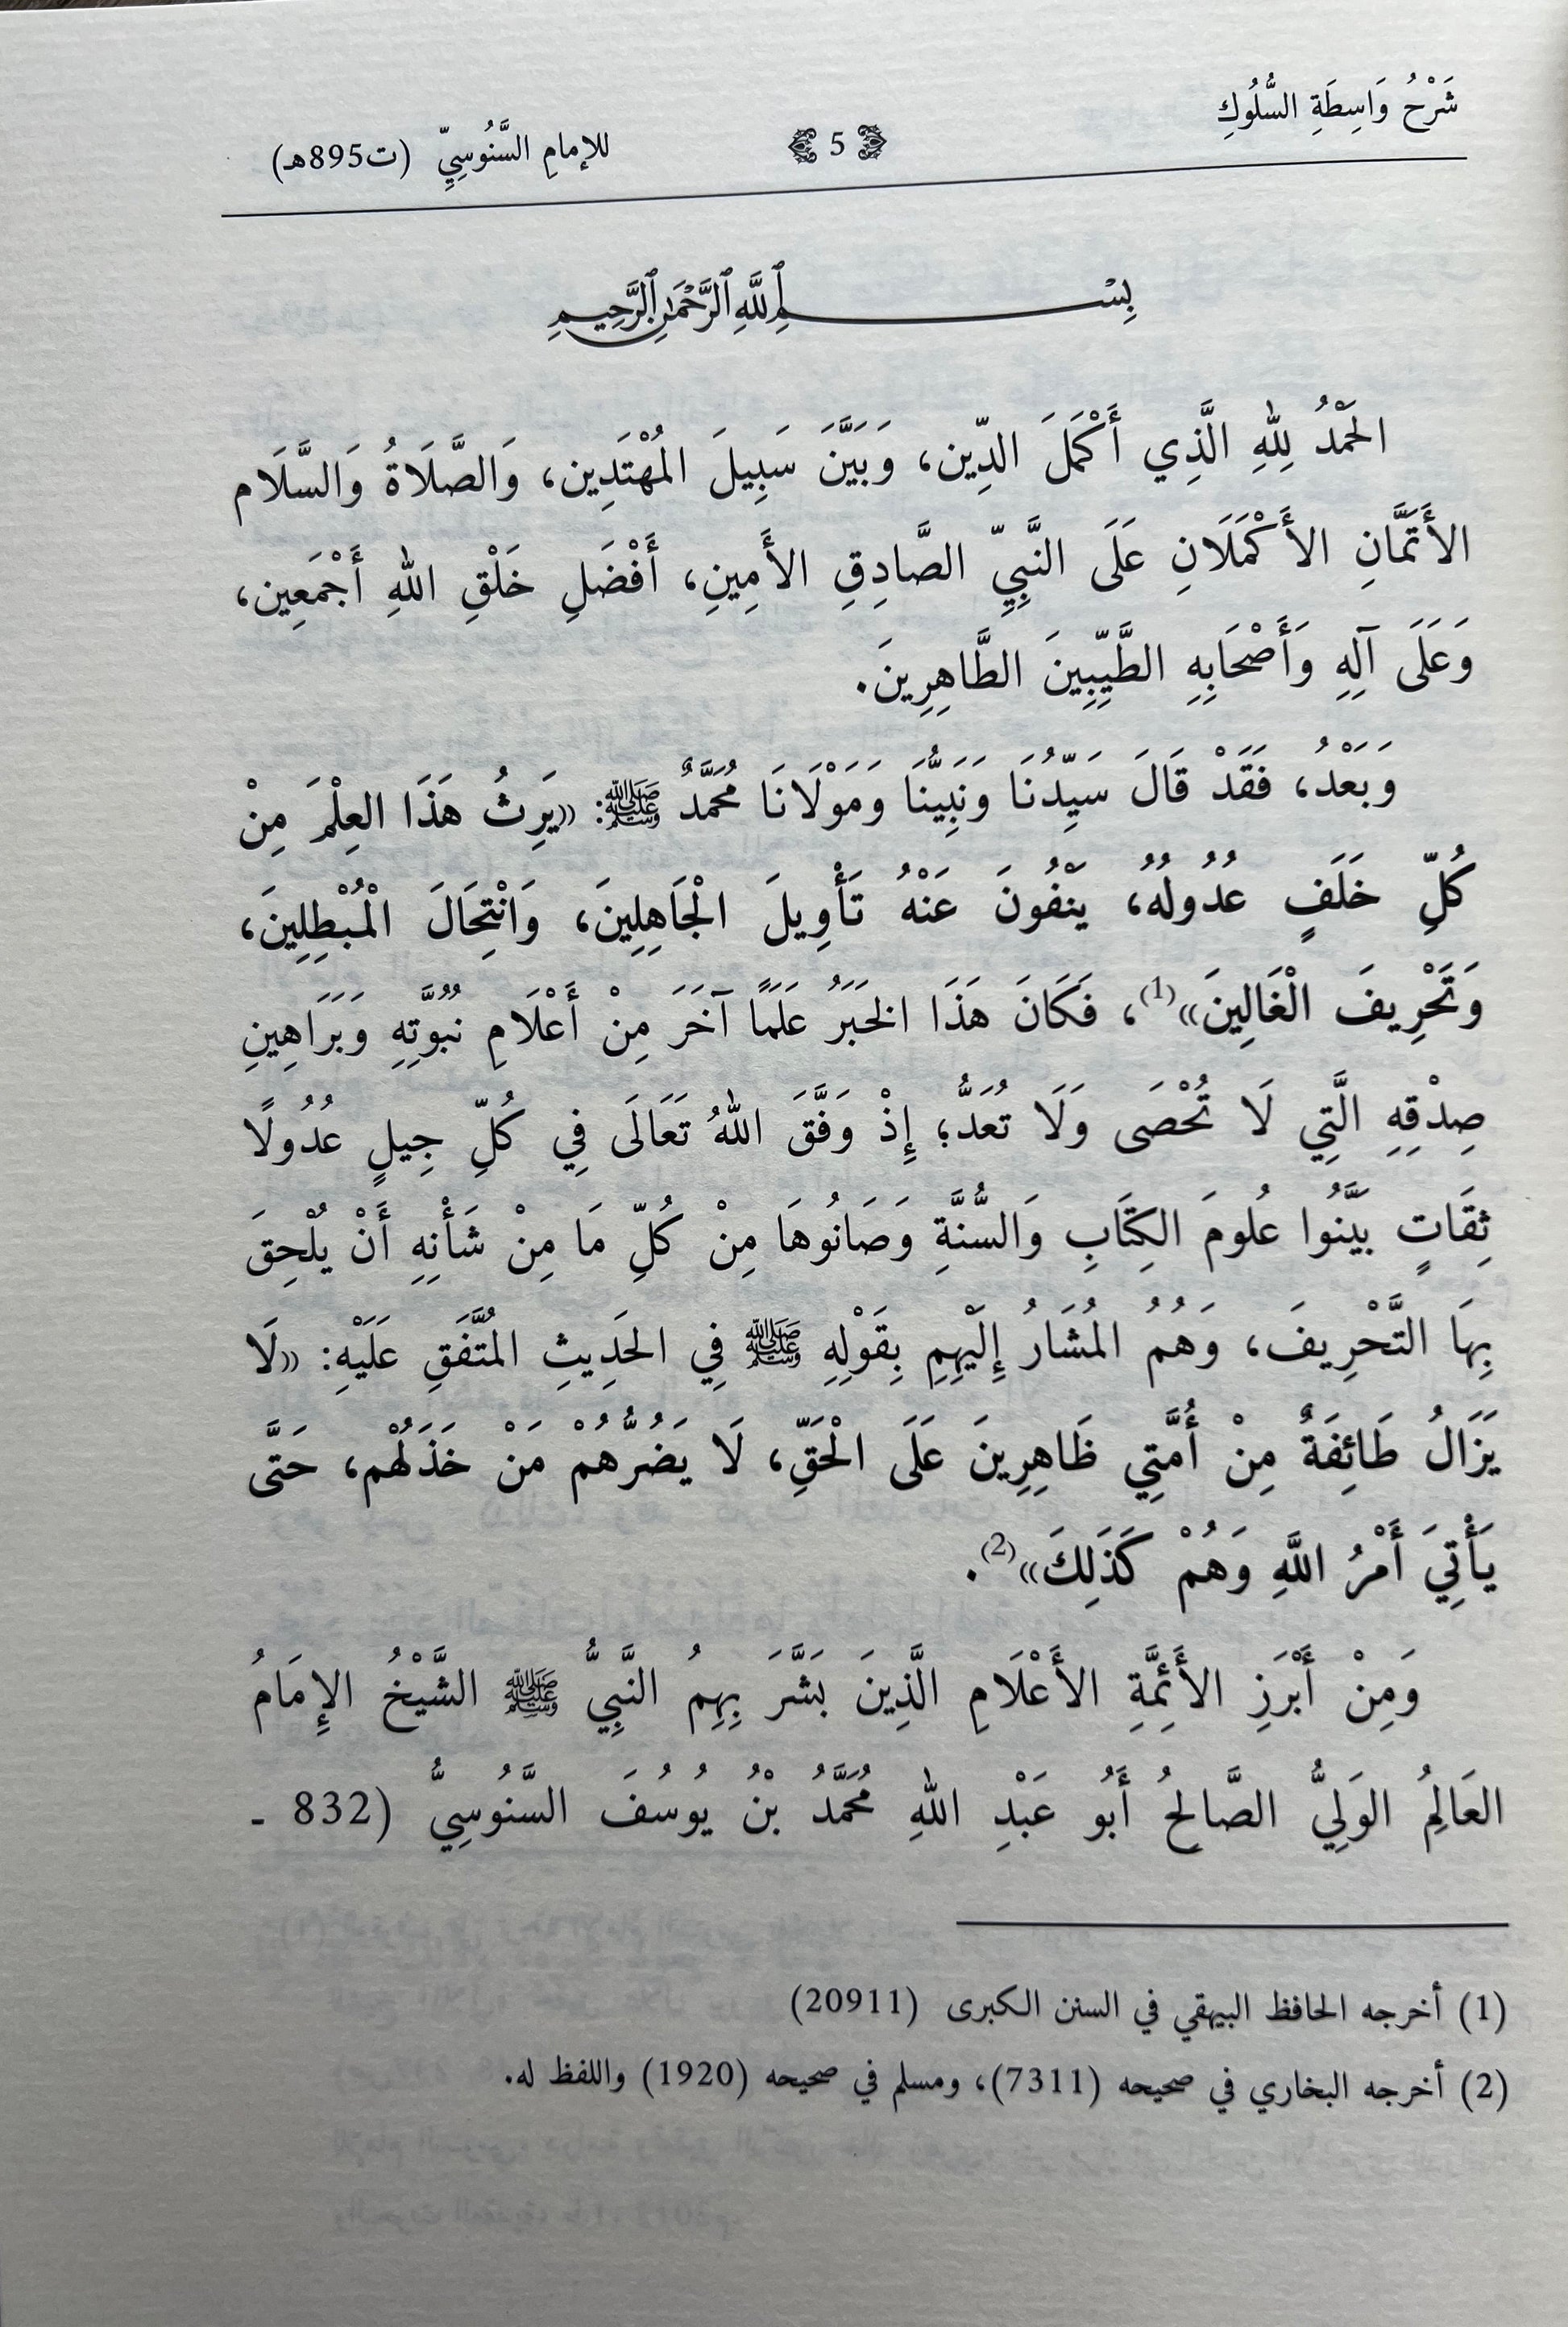 شَرْحُ وَاسِطَةِ السُّلُوكِ
﴿ 5 ﴾
للإمامِ السَّنُوسِيِّ (ت895هـ)
بِسْمِ ٱللَّهِ ٱلرَّحْمَٰنِ ٱلرَّحِيمِ
الحَمْدُ لِلّٰهِ الَّذِي أَكْمَلَ الدِّين، وَبَيَّنَ سَبِيلَ المُهْتَدِين، وَالصَّلَاةُ وَالسَّلَام
الأَتَمَّانِ الأَكْمَلَانِ عَلَى النَّبِيِّ الصَّادِقِ الأَمِينِ، أَفْضَلِ خَلْقِ اللهِ أَجْمَعِين،
وَعَلَى آلِهِ وَأَصْحَابِهِ الطَّيِّبِينَ الطَّاهِرِينَ.
وَبَعْدُ، فَقَدْ قَالَ سَيِّدُنَا وَنَبِيُّنَا وَمَوْلَانَا مُحَمَّدٌ ﷺ: «يَرِثُ هَذَا العِلْمَ مِنْ
كُلِّ خَلَفٍ عُدُولُهُ، يَنْفُونَ عَنْهُ تَأْوِيلَ الْجَاهِلِينَ، وَانْتِحَالَ الْمُبْطِلِينَ،
وَتَحْرِيفَ الْغَالِينَ»(1)، فَكَانَ هَذَا الخَبَرُ عَلَمًا آخَرَ مِنْ أَعْلَامِ نُبُوَّتِهِ وَبَرَاهِينِ
صِدْقِهِ الَّتِي لَا تُحْصَى وَلَا تُعَدُّ؛ إِذْ وَفَّقَ اللهُ تَعَالَى فِي كُلِّ جِيلٍ عُدُولًا
ثِقَاتٍ بَيَّنُوا عُلُومَ الكِتَابِ وَالسُّنَّةِ وَصَانُوهَا مِنْ كُلِّ مَا مِنْ شَأْنِهِ أَنْ يُلْحِقَ
بِهَا التَّحْرِيفَ، وَهُمُ المُشَارُ إِلَيْهِمِ بِقَوْلِهِ ﷺ فِي الحَدِيثِ المُتَّفَقِ عَلَيْهِ: «لَا
يَزَالُ طَائِفَةٌ مِنْ أُمَّتِي ظَاهِرِينَ عَلَى الْحَقِّ، لَا يَضُرُّهُمْ مَنْ خَذَلَهُم، حَتَّى
يَأْتِيَ أَمْرُ اللَّهِ وَهُمْ كَذَلِكَ»(2).
وَمِنْ أَبْرَزِ الأَئِمَّةِ الأَعْلَامِ الَّذِينَ بَشَّرَ بِهِمُ النَّبِيُّ ﷺ الشَّيْخُ الإِمَامُ
العَالِمُ الوَلِيُّ الصَّالِحُ أَبُو عَبْدِ اللهِ مُحَمَّدُ بْنُ يُوسُفَ السَّنُوسِيُّ (832 ـ
(1) أخرجه الحافظ البيهقي في السنن الكبرى (20911)
(2) أخرجه البخاري في صحيحه (7311)، ومسلم في صحيحه (1920) واللفظ له.